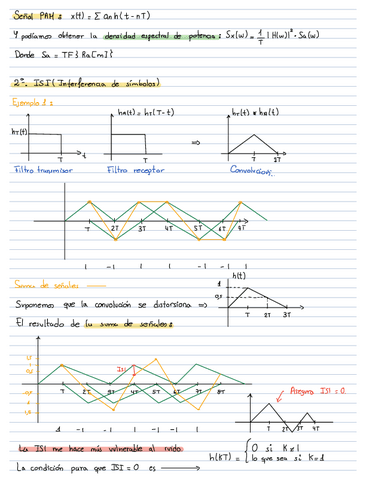 Señal PAM: x(t) = Σ an h(t - nT)
Y podíamos obtener la densidad espectral de potencia: Sx(w) = 1/T |H(w)|² · Sa(w)
Donde Sa = TF{Ra[m]}
2º. ISI (Interferencia de símbolos)
Ejemplo 1:
hT(t)
T
t
Filtro transmisor
hR(t) = hT(T-t)
T
Filtro receptor
⇒
hT(t) * hR(t)
T
2T
Convolución
T 2T 3T 4T 5T 6T
1 -1 1 1 -1 -1 1
Suma de señales
Suponemos que la convolución se distorsiona ⇒
h(t)
1
0,5
T 2T 3T
El resultado de la suma de señales:
ISI
T 2T 4T 5T 6T 7T
1 -1 1 1 -1 -1 1
Asegura ISI = 0
T 2T 3T 4T
La ISI me hace más vulnerable al ruido
La condición para que ISI = 0 es
h(KT) = { 0 si K ≠ 1
lo que sea si K = 1